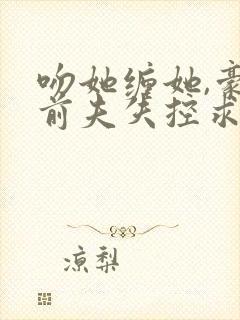 吻她缠她,豪
前夫失控求
凉梨